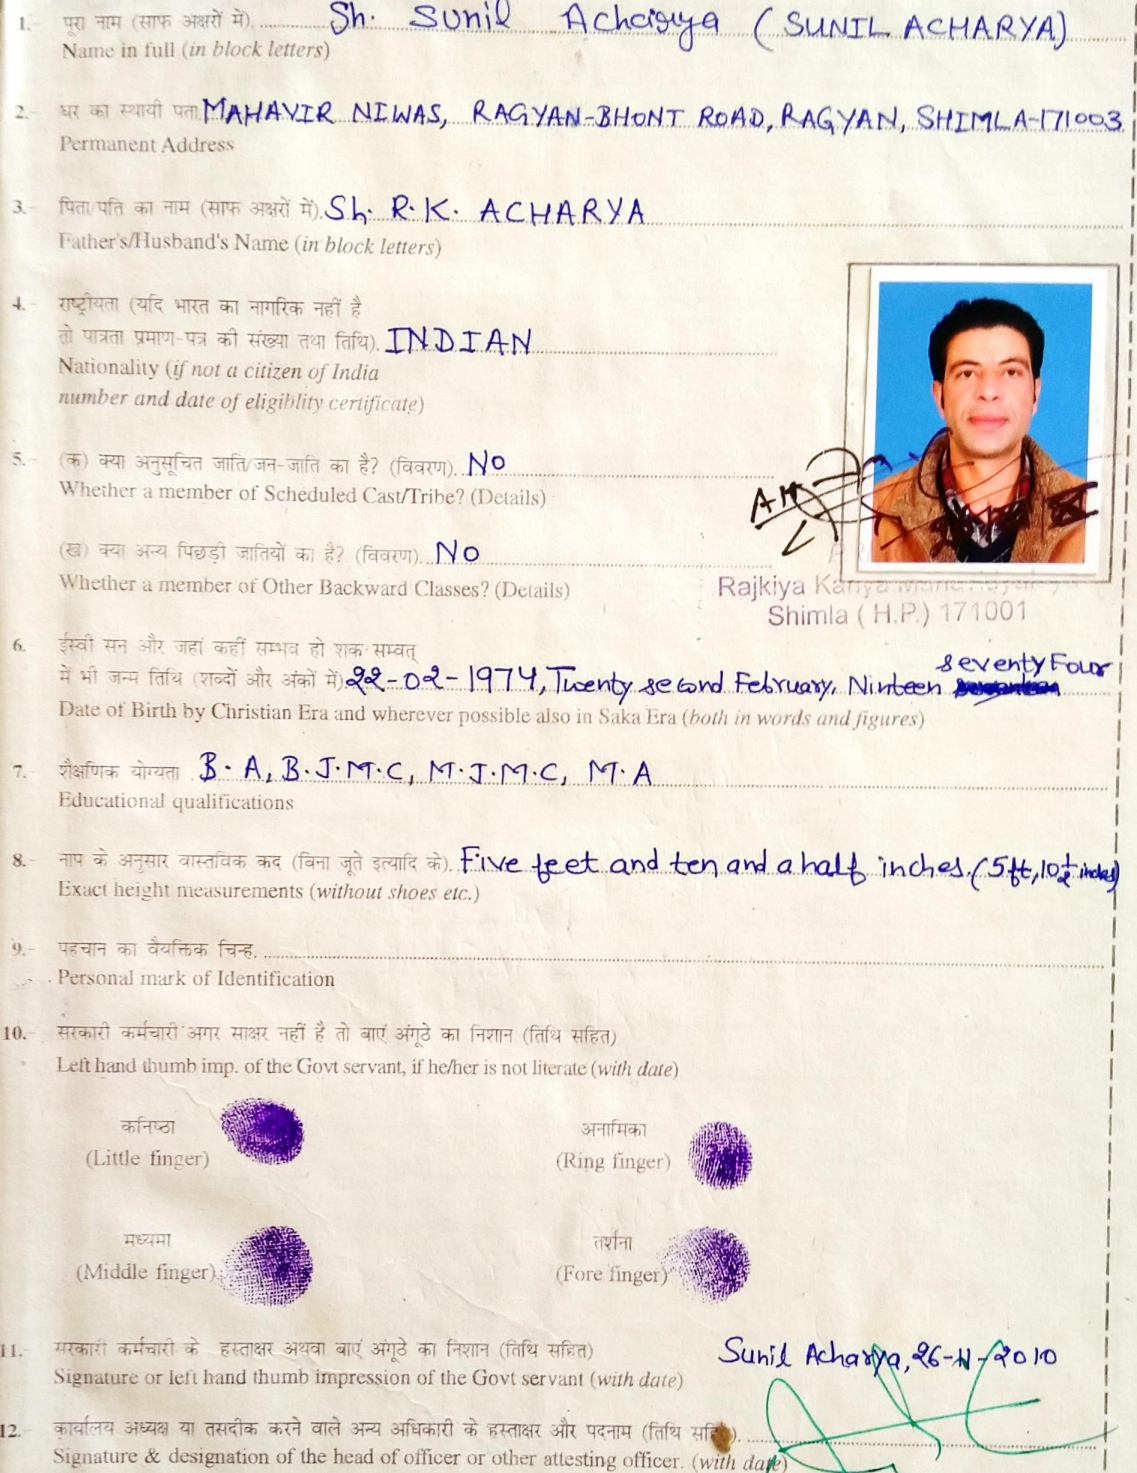 1. पूरा नाम (साफ अक्षरों में). Sh. Sunil Acharya (SUNIL ACHARYA)
Name in full (in block letters)
2.- घर का स्थायी पता MAHAVIR NIWAS, RAGYAN-BHONT ROAD, RAGYAN, SHIMLA-171003
Permanent Address
3.- पिता/पति का नाम (साफ अक्षरों में). Sh. R.K. ACHARYA
Father's/Husband's Name (in block letters)
4.- राष्ट्रीयता (यदि भारत का नागरिक नहीं है
तो पात्रता प्रमाण-पत्र की संख्या तथा तिथि). INDIAN
Nationality (if not a citizen of India
number and date of eligiblity certificate)
5.- (क) क्या अनुसूचित जाति/जन-जाति का है? (विवरण). No
Whether a member of Scheduled Cast/Tribe? (Details)
(ख) क्या अन्य पिछड़ी जातियों का है? (विवरण). No
Whether a member of Other Backward Classes? (Details)
Rajkiya Kanya
Shimla ( H.P.) 171001
6. ईस्वी सन और जहां कहीं सम्भव हो शक सम्वत्
seventy Four
में भी जन्म तिथि (शब्दों और अंकों में) 22-02-1974, Twenty second February, Ninteen
Date of Birth by Christian Era and wherever possible also in Saka Era (both in words and figures)
7.- शैक्षणिक योग्यता B.A, B.J.M.C, M.J.M.C, M.A
Educational qualifications
8.- नाप के अनुसार वास्तविक कद (बिना जूते इत्यादि के). Five feet and ten and a half inches. (5ft, 10½ inches)
Exact height measurements (without shoes etc.)
9.- पहचान का वैयक्तिक चिन्ह.
Personal mark of Identification
10.- सरकारी कर्मचारी अगर साक्षर नहीं है तो बाएं अंगूठे का निशान (तिथि सहित)
Left hand thumb imp. of the Govt servant, if he/her is not literate (with date)
कनिष्ठा अनामिका
(Little finger) (Ring finger)
मध्यमा तर्शना
(Middle finger) (Fore finger)
11.- सरकारी कर्मचारी के हस्ताक्षर अथवा बाएं अंगूठे का निशान (तिथि सहित) Sunil Acharya, 26-11-2010
Signature or left hand thumb impression of the Govt servant (with date)
12.- कार्यालय अध्यक्ष या तसदीक करने वाले अन्य अधिकारी के हस्ताक्षर और पदनाम (तिथि सहित).
Signature & designation of the head of officer or other attesting officer. (with date)